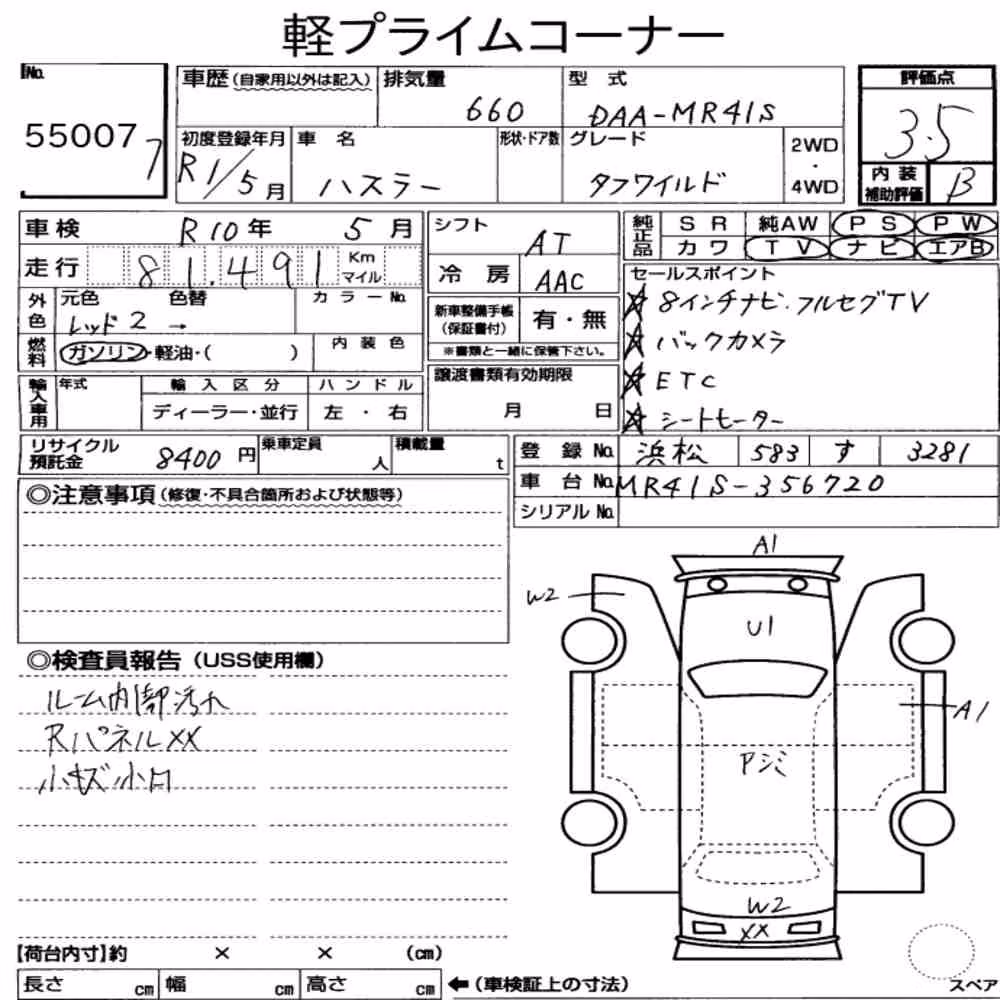 軽プライムコーナー
No. 55007 7
車歴(自家用以外は記入)
排気量 660
型式 DAA-MR41S
評価点 3.5
初度登録年月 R1/5月
車名 ハスラー
形状・ドア数
グレード タフワイルド
2WD・4WD
内装補助評価 B
車検 R10年 5月
走行 81,491 Km マイル
外色 元色 レッド2 色替 → カラーNo.
燃料 ガソリン・軽油・( ) 内装色
輸入車用 年式 輸入区分 ディーラー・並行 ハンドル 左・右
シフト AT
冷房 AAC
新車整備手帳(保証書付) 有・無
※書類と一緒に保管下さい。
譲渡書類有効期限
月 日
純正品 SR 純AW PS PW
カワ TV ナビ エアB
セールスポイント
☆ 8インチナビ・フルセグTV
☆ バックカメラ
☆ ETC
☆ シートヒーター
リサイクル預託金 8400円
乗車定員 人
積載量 t
登録No. 浜松 583 す 3281
車台No. MR41S-356720
シリアルNo.
◎注意事項(修復・不具合箇所および状態等)
◎検査員報告(USS使用欄)
ルーム内部汚れ
Rパネルxx
小キズ小凹
A1
W2
U1
A1
Pシミ
W2
xx
【荷台内寸】約 × × (cm)
長さ cm 幅 cm 高さ cm ←(車検証上の寸法)
スペア